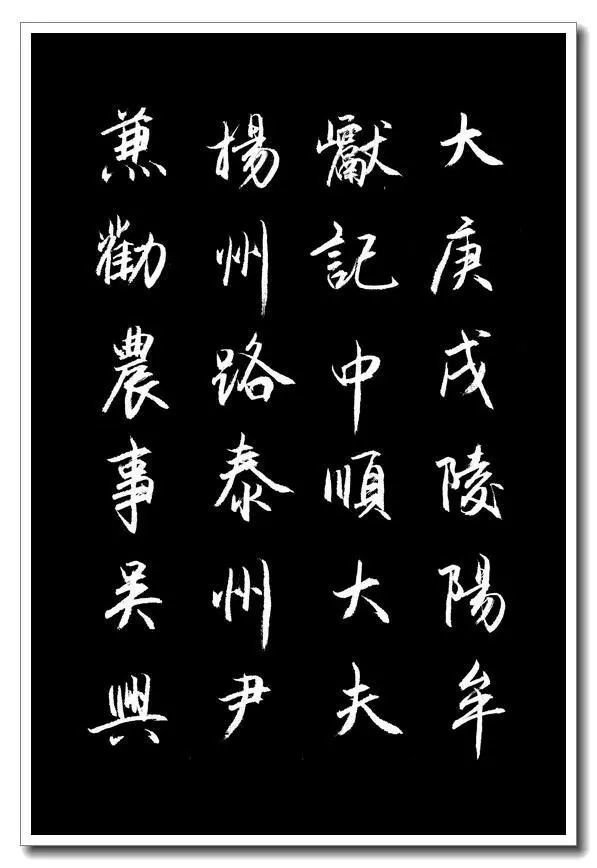 大庚戌陵陽牟
巘記中順大夫
楊州路泰州尹
兼勸農事吳興